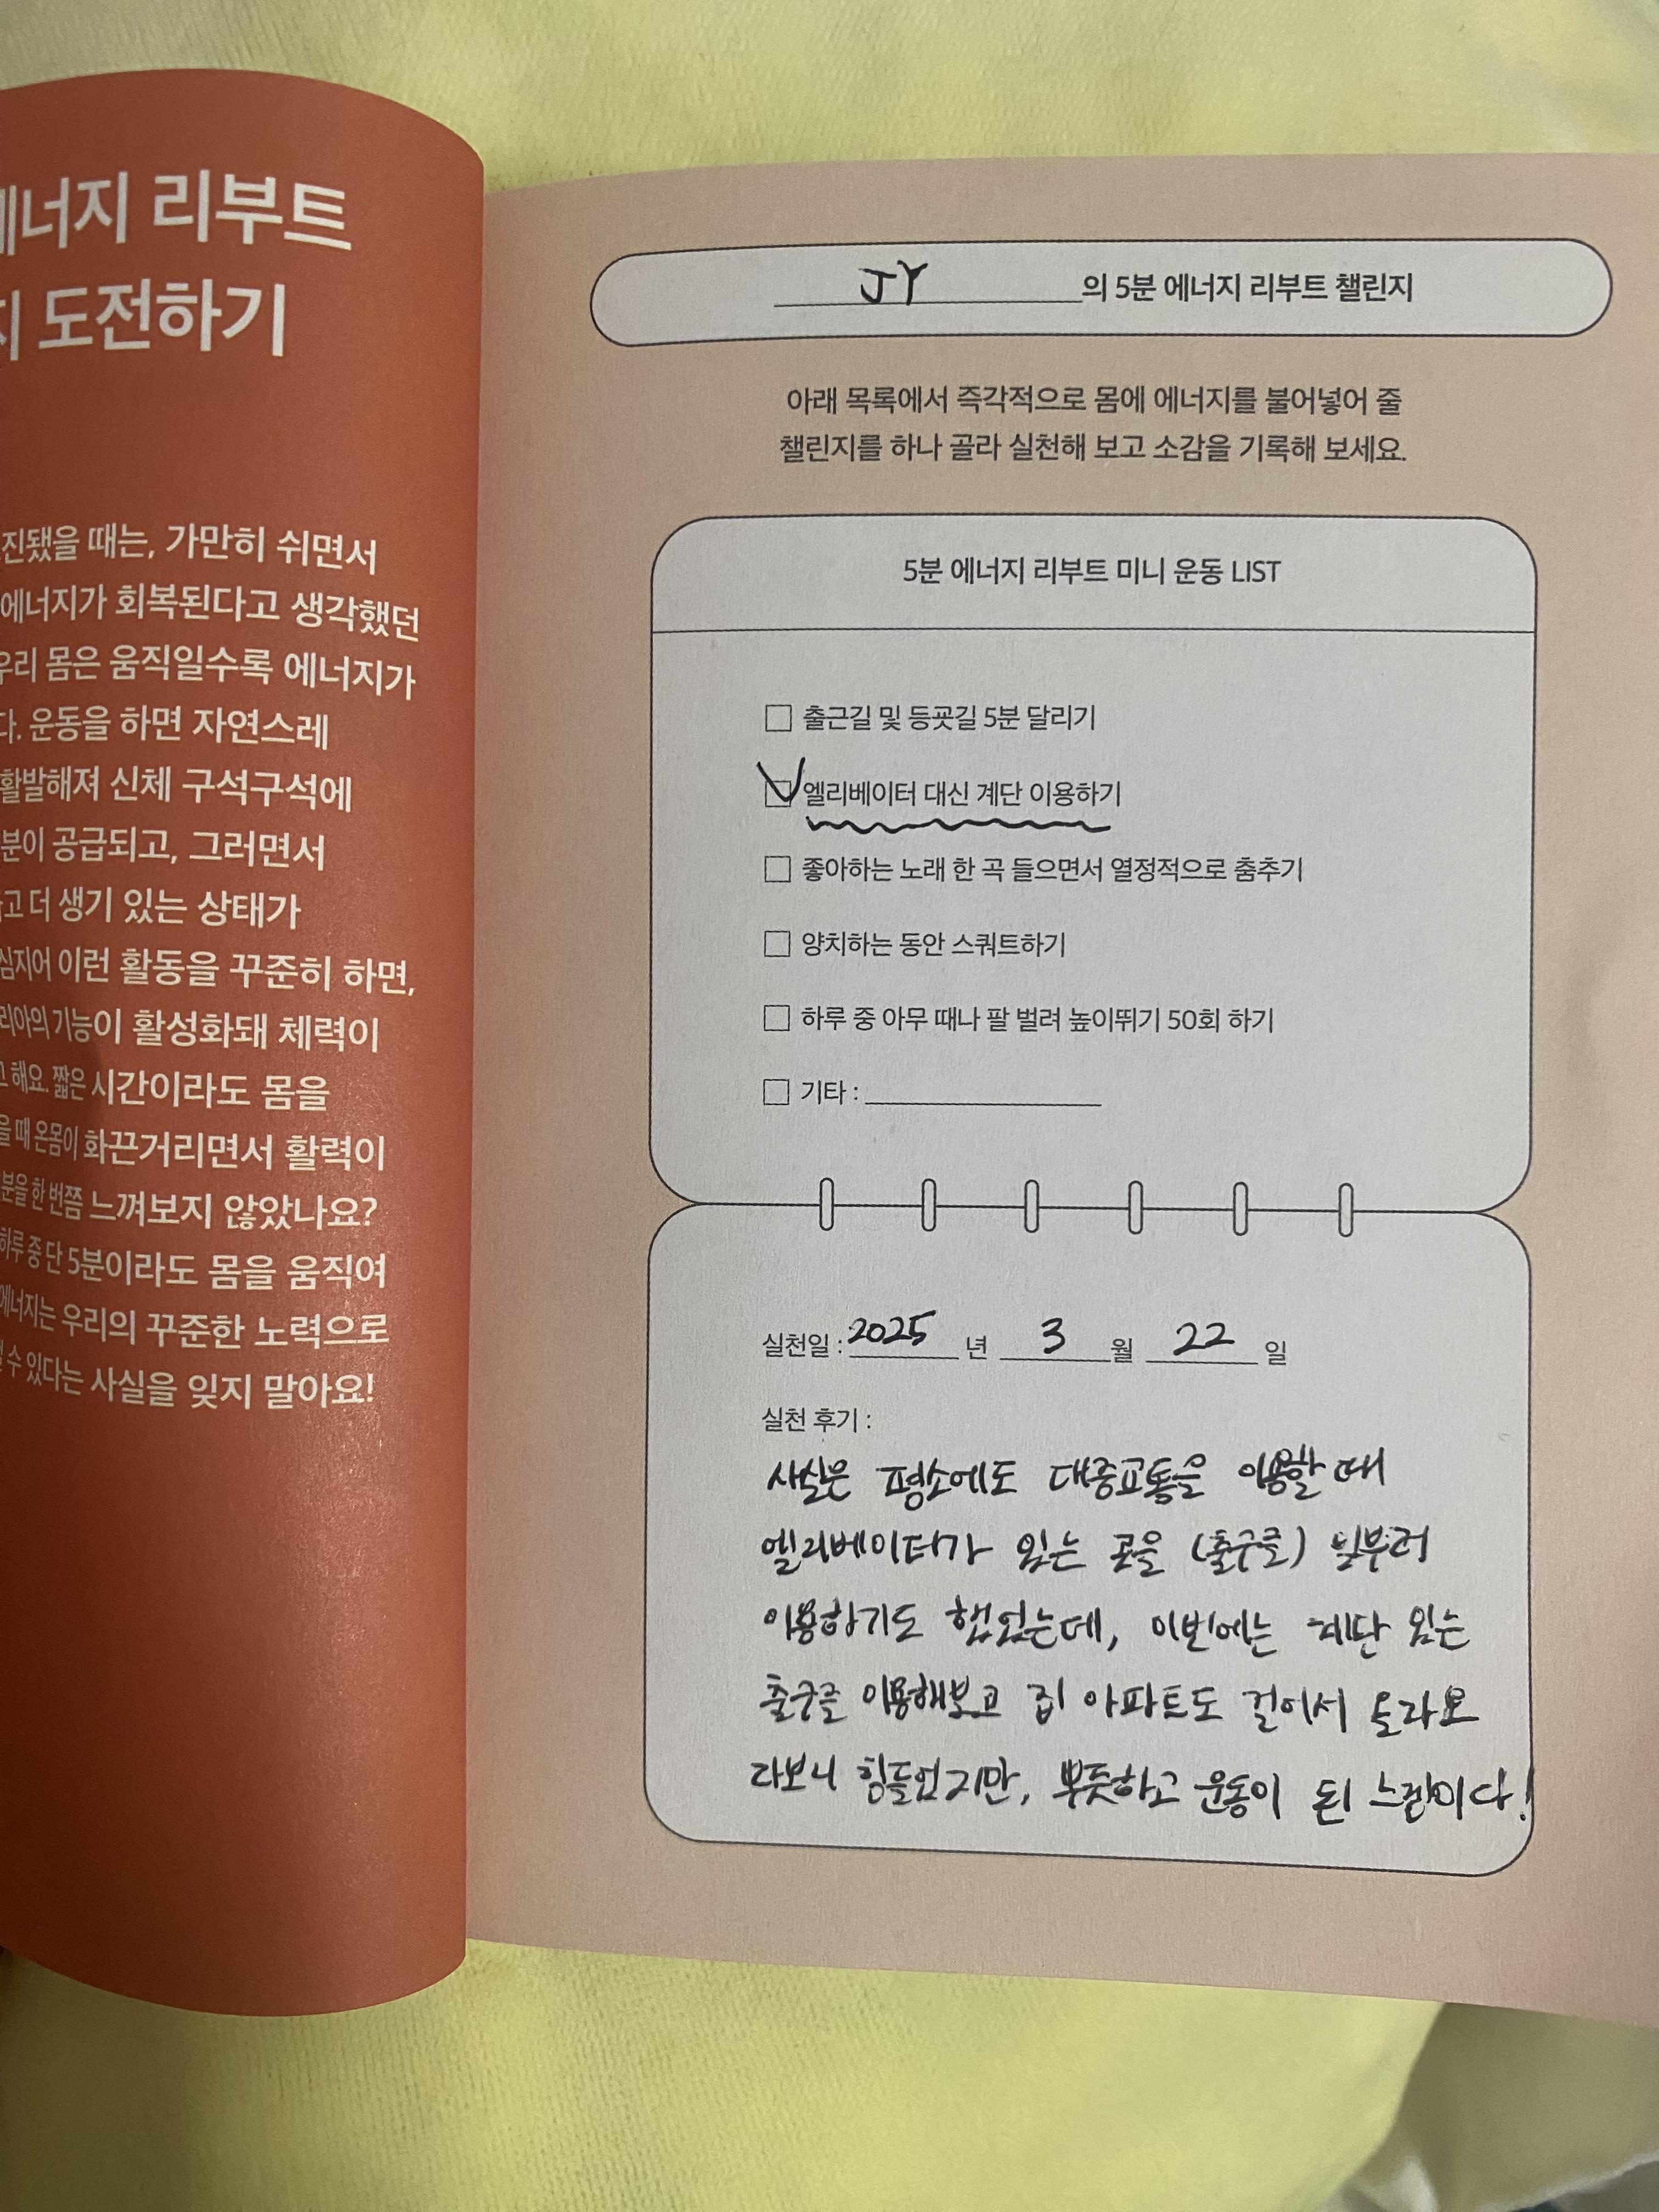 에너지 리부트
도전하기
때는, 가만히 쉬면서
에너지가 회복된다고 생각했던
우리 몸은 움직일수록 에너지가
운동을 하면 자연스레
활발해져 신체 구석구석에
공급되고, 그러면서
더 생기 있는 상태가
심지어 이런 활동을 꾸준히 하면,
기능이 활성화돼 체력이
해요. 짧은 시간이라도 몸을
때 온몸이 화끈거리면서 활력이
한 번쯤 느껴보지 않았나요?
하루 중 단 5분이라도 몸을 움직여
에너지는 우리의 꾸준한 노력으로
수 있다는 사실을 잊지 말아요!
JY의 5분 에너지 리부트 챌린지
아래 목록에서 즉각적으로 몸에 에너지를 불어넣어 줄
챌린지를 하나 골라 실천해 보고 소감을 기록해 보세요.
5분 에너지 리부트 미니 운동 LIST
출근길 및 등굣길 5분 달리기
엘리베이터 대신 계단 이용하기
좋아하는 노래 한 곡 들으면서 열정적으로 춤추기
양치하는 동안 스쿼트하기
하루 중 아무 때나 팔 벌려 높이뛰기 50회 하기
기타 :
실천일 : 2025 년 3 월 22 일
실천 후기 :
사실은 평소에도 대중교통을 이용할 때
엘리베이터가 있는 곳을 (출구를) 일부러
이용하기도 했었는데, 이번에는 계단 있는
출구를 이용해보고 집 아파트도 걸어서 올라오
다보니 힘들었지만, 뿌듯하고 운동이 된 느낌이다!